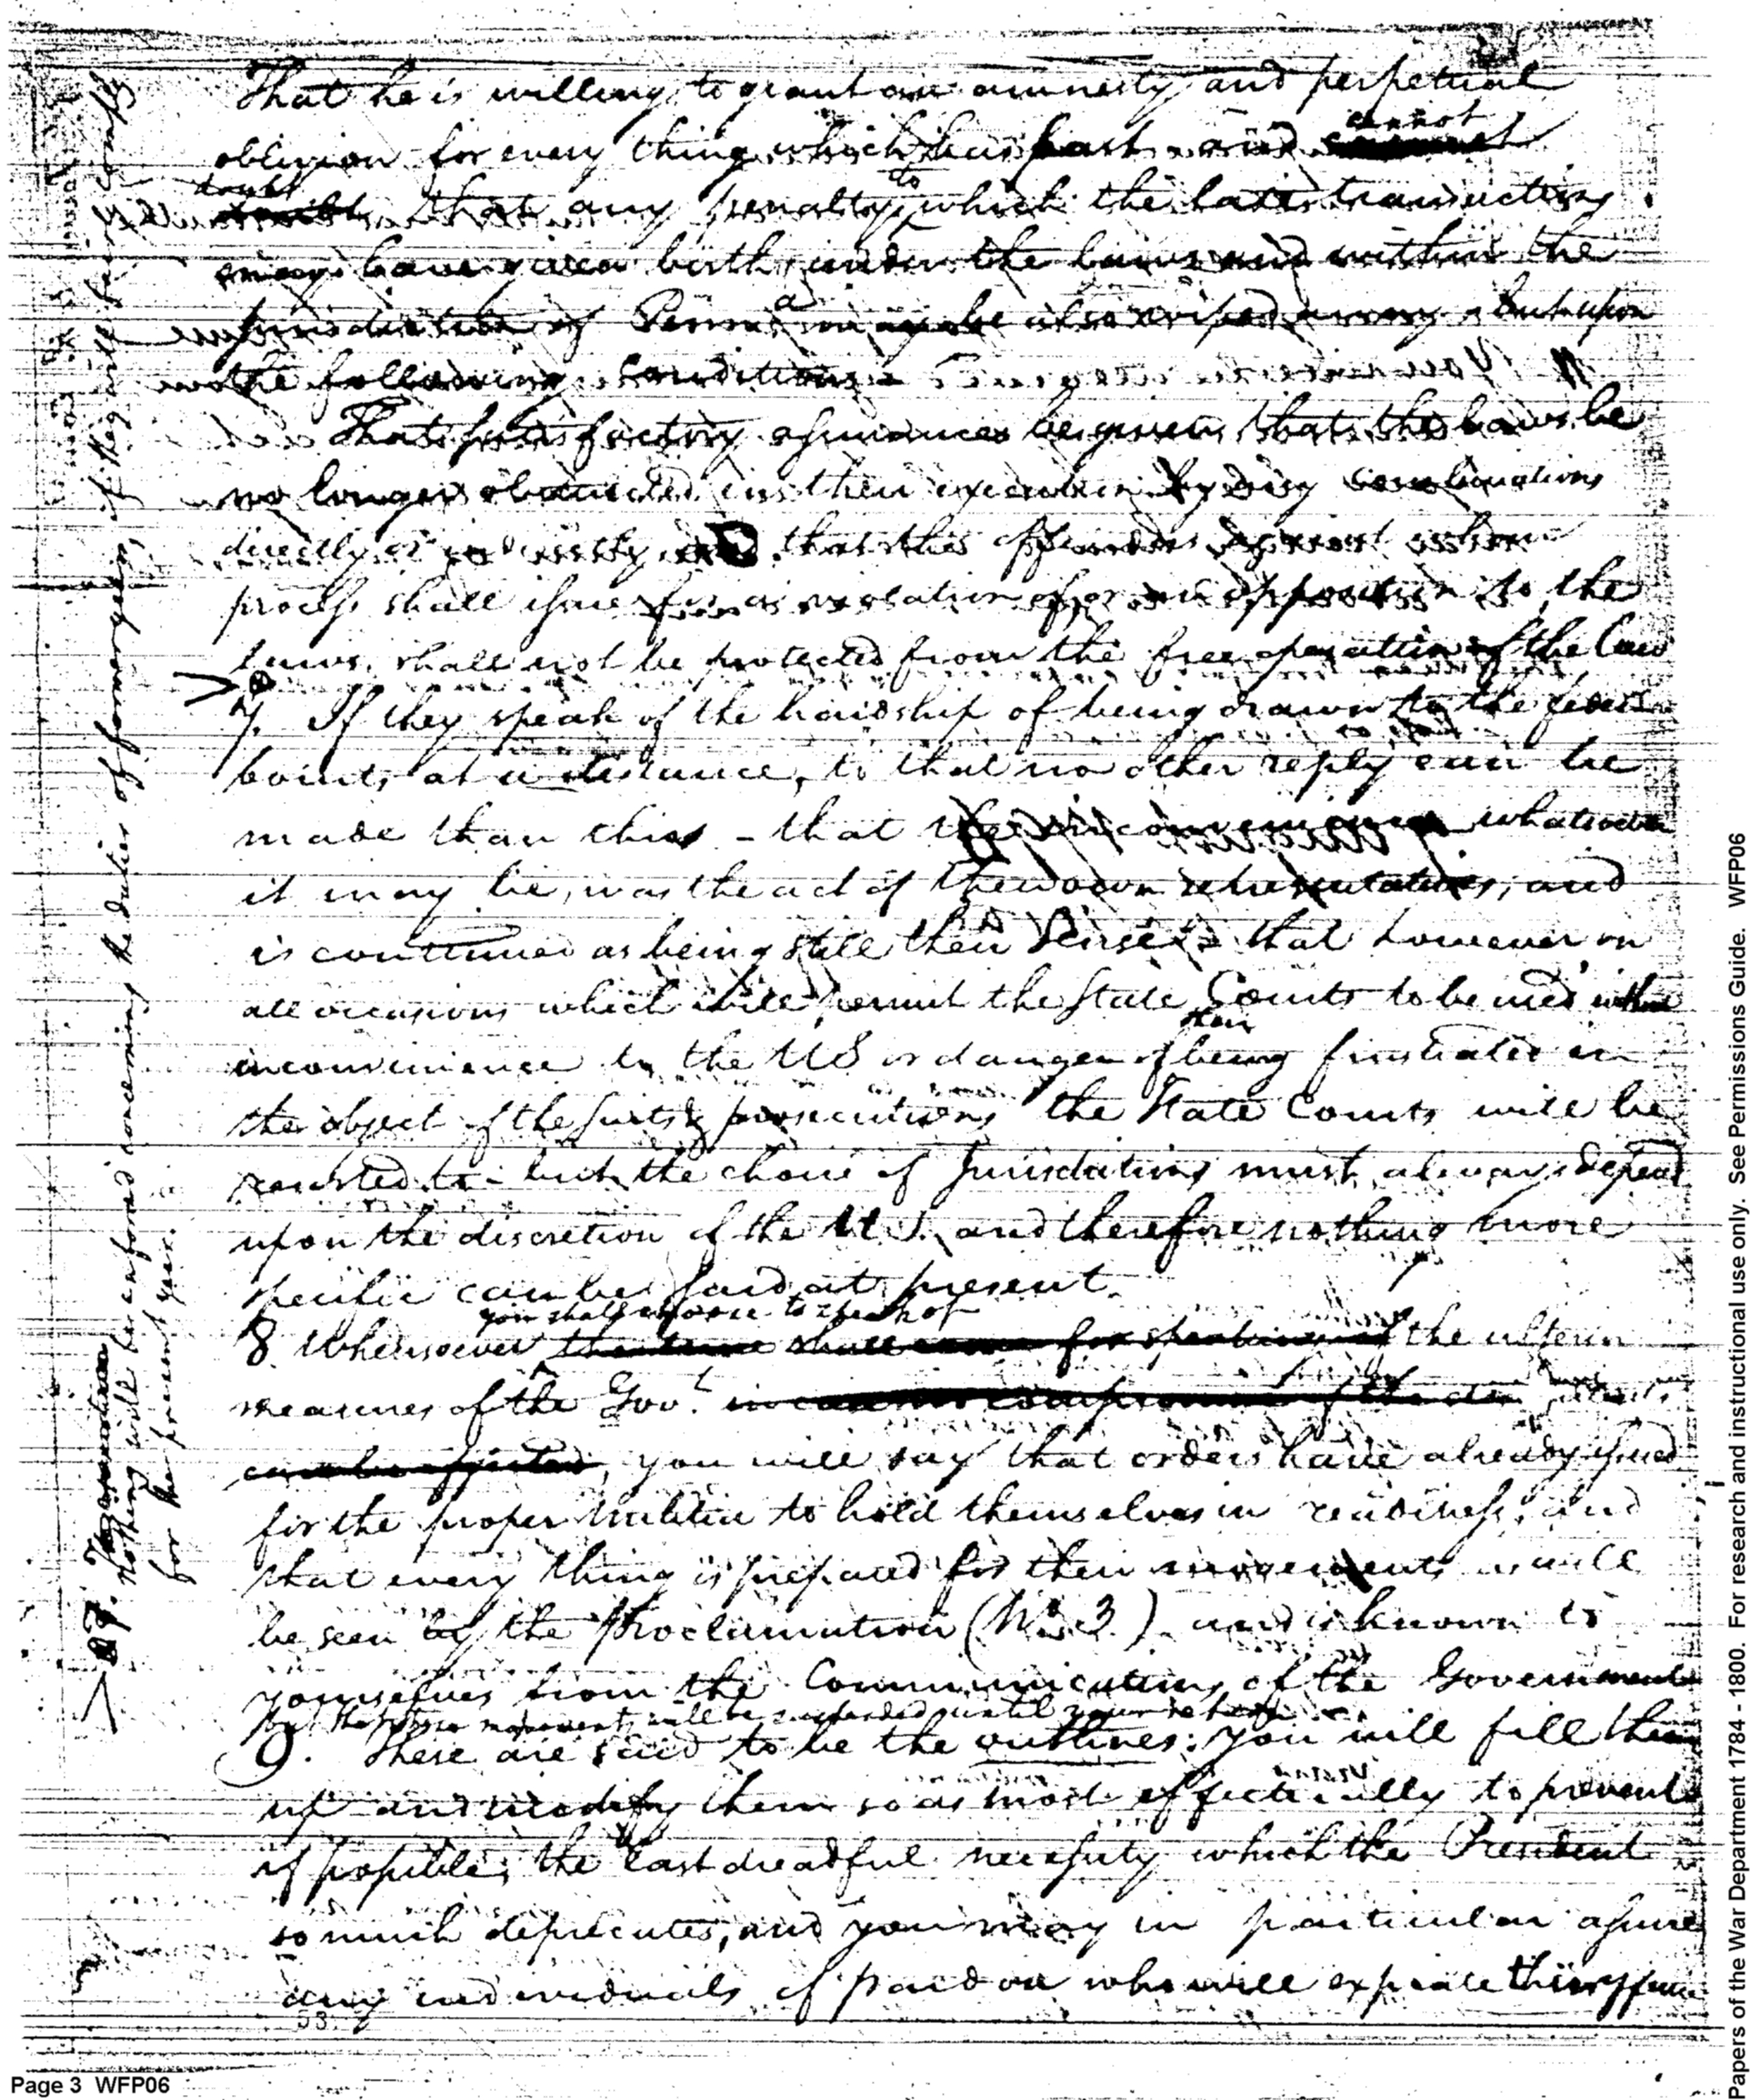 That he is willing to grant an amnesty and perpetual
oblivion for every thing which has past - and cannot
doubt that any penalty to which the late transactions
may have given birth, under the laws and within the
jurisdiction of Penna. may be also wiped away - but upon
the following conditions
That satisfactory assurances be given that the laws be
no longer obstructed in their execution by any combinations
directly or indirectly and that the offenders against whom
process shall issue for a violation of or an opposition to the
laws, shall not be protected from the free operation of the law
7. If they speak of the hardship of being drawn to the federal
Courts at a distance, to that no other reply can be
made than this - that the inconvenience whatsoever
it may be, was the act of their own representatives, and
is continued as being still their sense; that however on
all occasions which will permit the State Courts to be used without
inconvenience to the US or danger of their being frustrated in
the object of the suits & prosecutions the State Courts will be
resorted to - but the choice of Jurisdictions must always depend
upon the discretion of the U S. and therefore nothing more
specific can be said at present.
8. Whensoever you shall choose to speak of the ulterior
measures of the Govt.
you will say that orders have already issued
for the proper Militia to hold themselves in readiness, and
that every thing is prepared for their movements as will
be seen by the Proclamation (No. 3.) and is known to
yourselves from the Communications of the Government
but that these movements will be suspended until your return
9. These are said to be the outlines: you will fill them
up and modify them so as most effectually to prevent
if possible, the last dreadful necessity which the President
so much deprecates, and you may in particular assure
any individuals of pardon who will expiate their offence
53.
nothing will be enforced concerning the duties of former years, if they will fairly comply
for the present year.
Page 3 WFP06
Papers of the War Department 1784 - 1800. For research and instructional use only. See Permissions Guide. WFP06